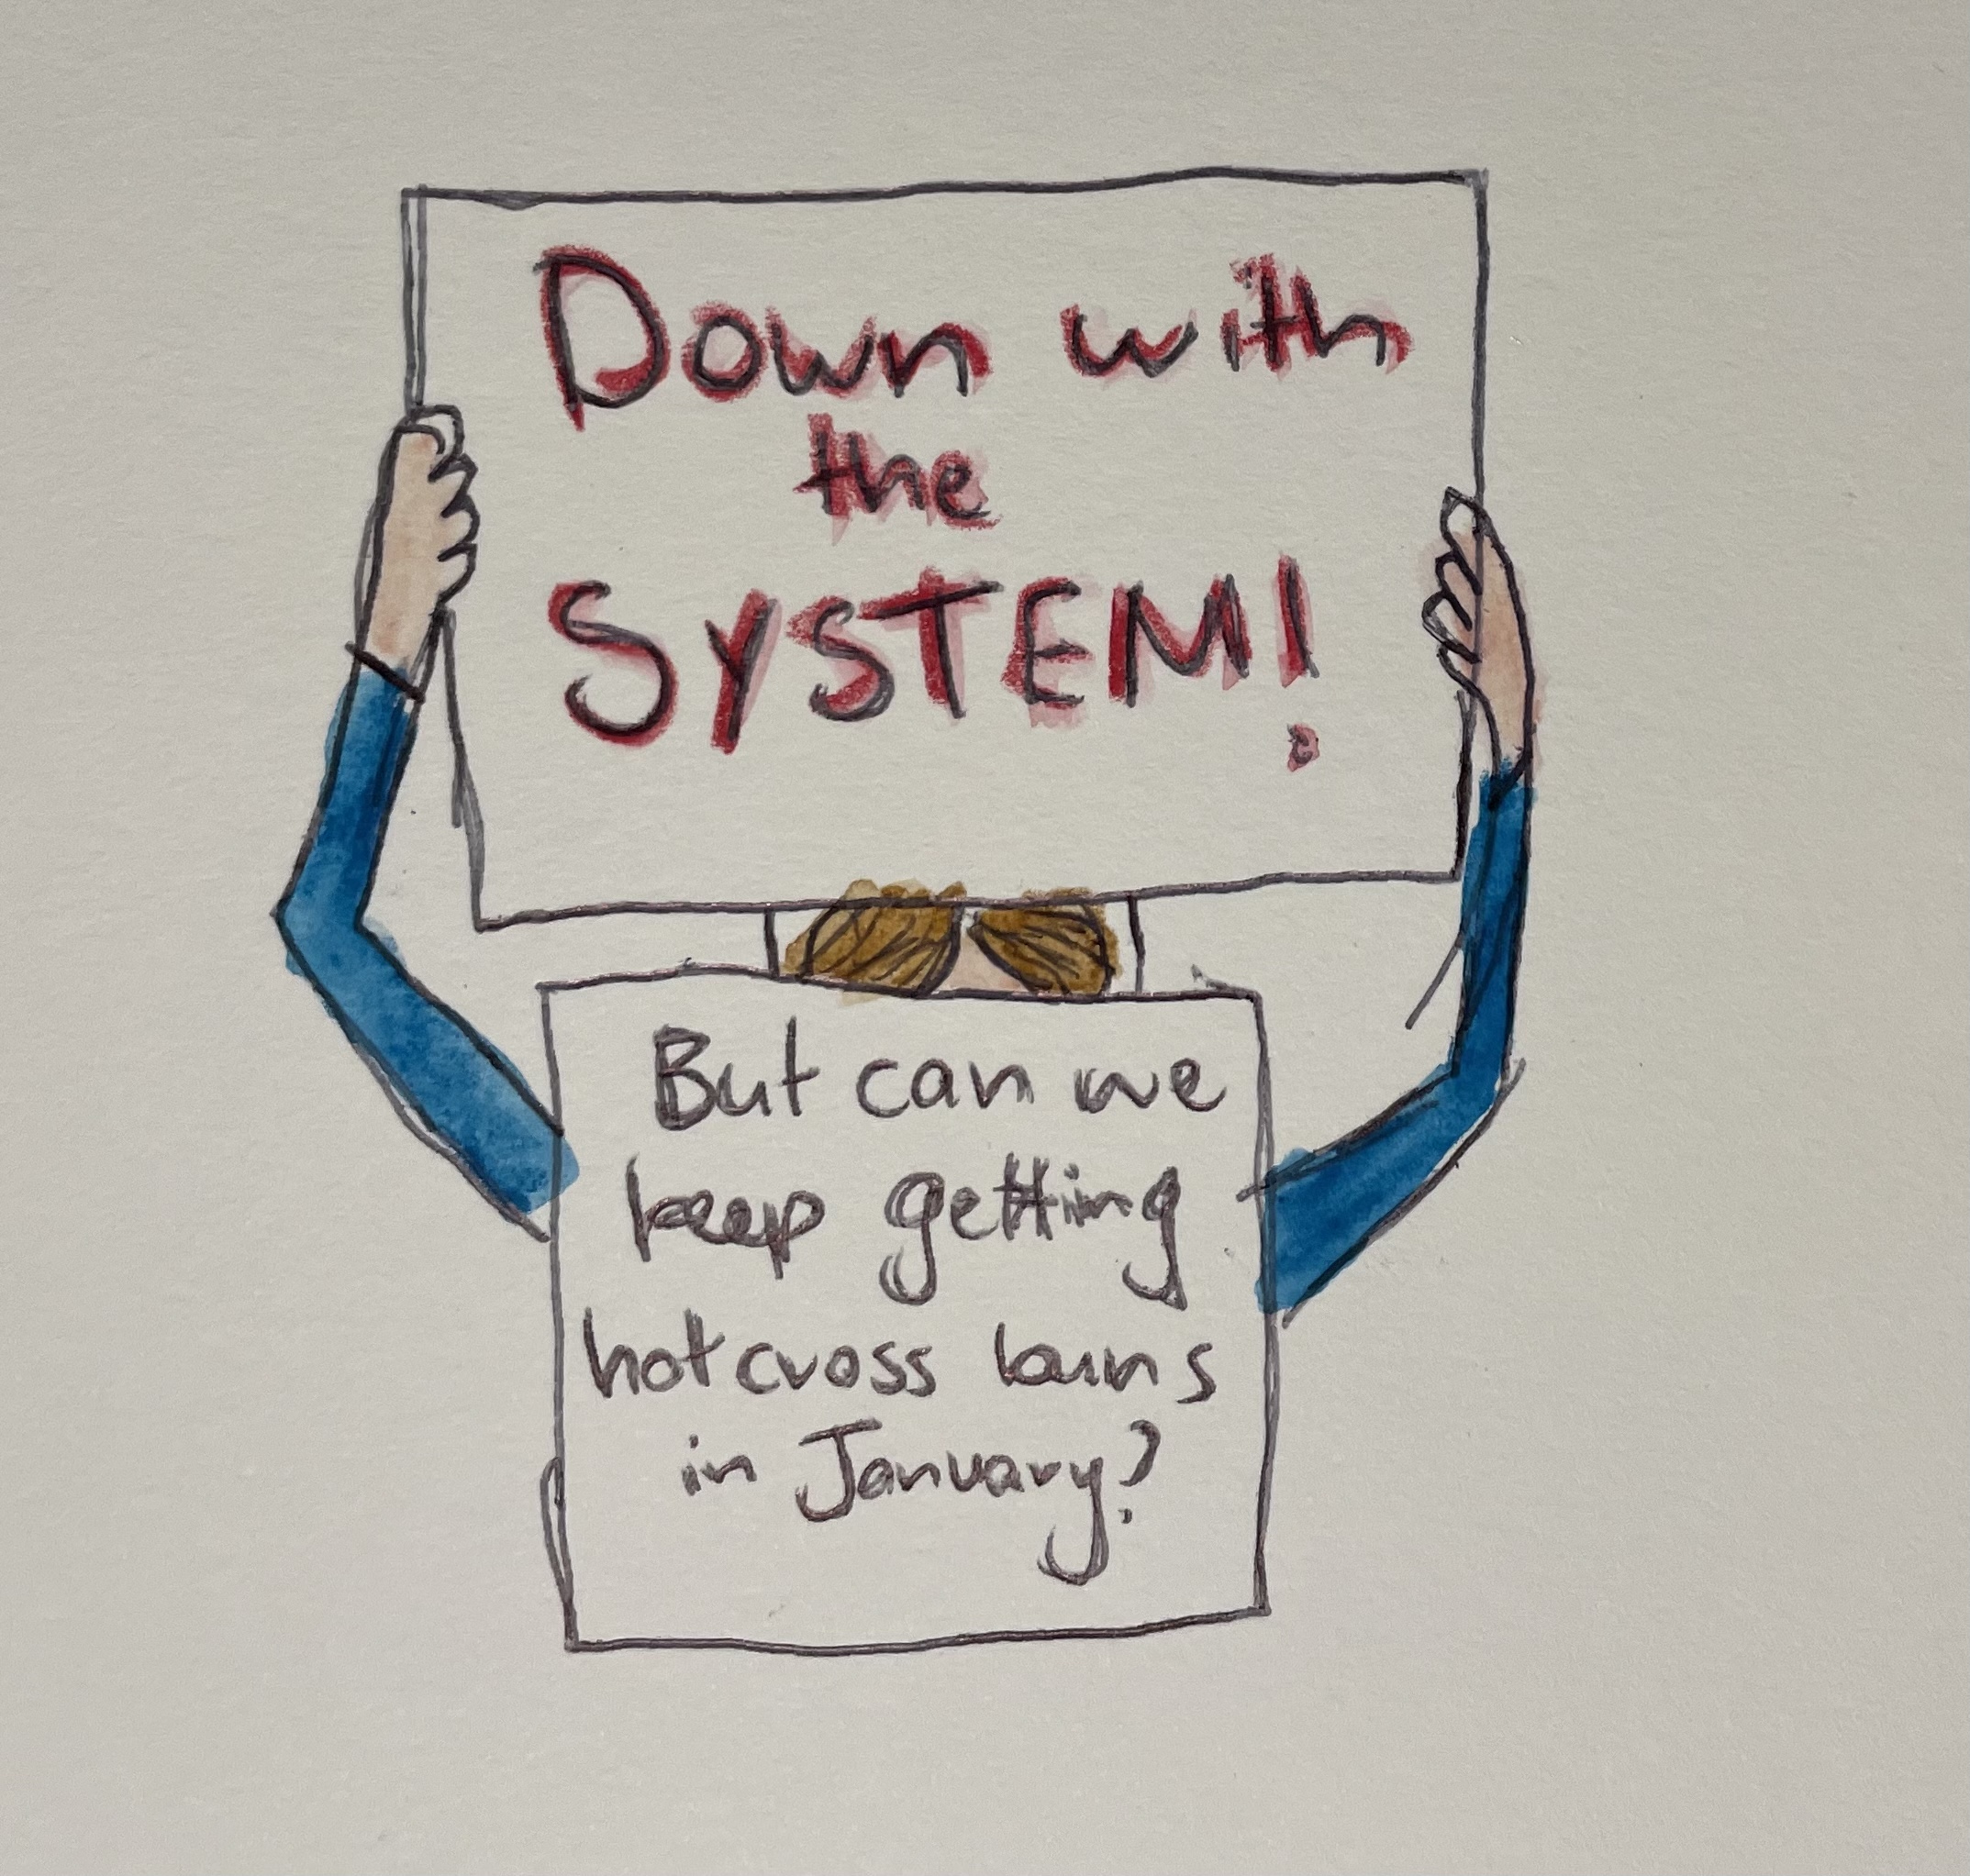 Down with
the
SYSTEM!
But can we
keep getting
hot cross buns
in January?